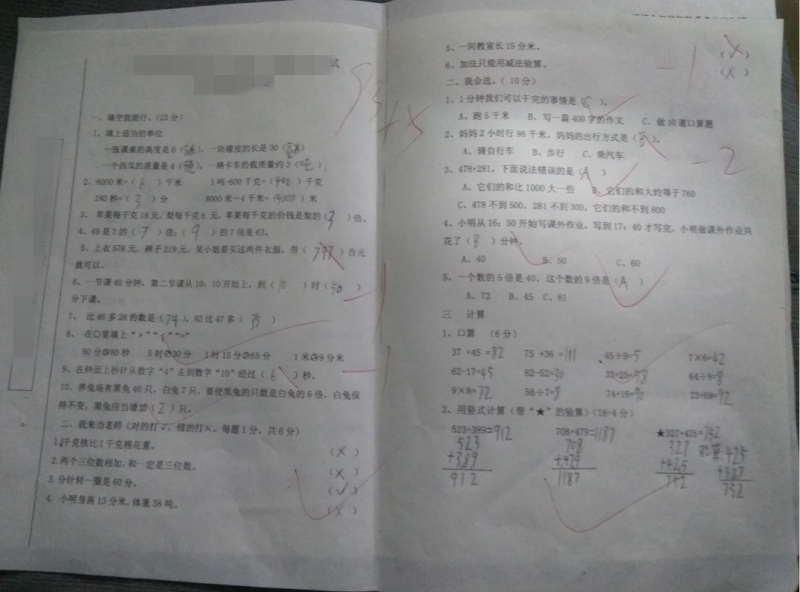 试
93+5
一、填空我能行。(23分)
1、填上适当的单位
一张课桌的高度是6( ), 一块橡皮的长是30( )
一个西瓜的质量是4( ), 一辆卡车的载质量约3(吨)。
2、6000米=(6)千米 1吨-600千克=(400)千克
180秒=(3)分 8000米-4千米=(4000)米
3、苹果每千克18元, 梨每千克6元, 苹果每千克的价钱是梨的(3)倍。
4、49是7的(7)倍; (9)的7倍是63。
5、上衣578元, 裤子219元, 吴小姐要买这两件衣服, 带(797)当元
就可以。
6、一节课40分钟, 第二节课从10:10开始上, 到(10)时(50)
分下课。
7、比46多28的数是(74), 82比47多(35)
8、在○里填上“>”“<”“=”
80分 80秒 5时 30分 1时15分 65分 1米 9分米
9、在钟面上秒针从数字“4”走到数字“10”经过(6)秒。
10、养兔场有黑兔40只, 白兔7只, 要使黑兔的只数是白兔的6倍, 白兔保
持不变, 黑兔应当增加(2)只。
二、我来当老师(对的打√, 错的打×, 每题1分, 共6分)
1、千克铁比1千克棉花重。 (X)
2、两个三位数相加, 和一定是三位数。 (X)
3、分针转一圈是60分。 (√)
4、小明身高13分米, 体重38吨。 (X)
5、一间教室长15分米。 (X)
6、加法只能用减法验算。 (X)
-1
二、我会选。(10分)
1、1分钟我们可以干完的事情是(C)。
A、跑5千米 B、写一篇400字的作文 C、做20道口算题
2、妈妈2小时行98千米, 妈妈的出行方式是( )。
A、骑自行车 B、步行 C、乘汽车
-2
3、478+281, 下面说法错误的是(A)
A、它们的和比1000大一些 B、它们的和大约等于760
C、478不到500, 281不到300, 它们的和不到800
4、小明从16:50开始写课外作业, 写到17:40才写完, 小明做课外作业共
花了(B)分钟。
A、40 B、50 C、60
5、一个数的5倍是40, 这个数的9倍是(A)
A、72 B、45 C、81
三 计算
1、口算 (6分)
37+45=82 75+36=111 45÷9=5 7×6=42
62-17=45 82-52=30 33+25=58 64÷8=8
9×8=72 56÷7=8 74+16=90 23+69=92
2、用竖式计算(带“★”的验算)(18+4分)
523+389=912 708+479=1187 ★327+425=752
523 708 327 验算 425
+389 +479 +425 +327
912 1187 752 752